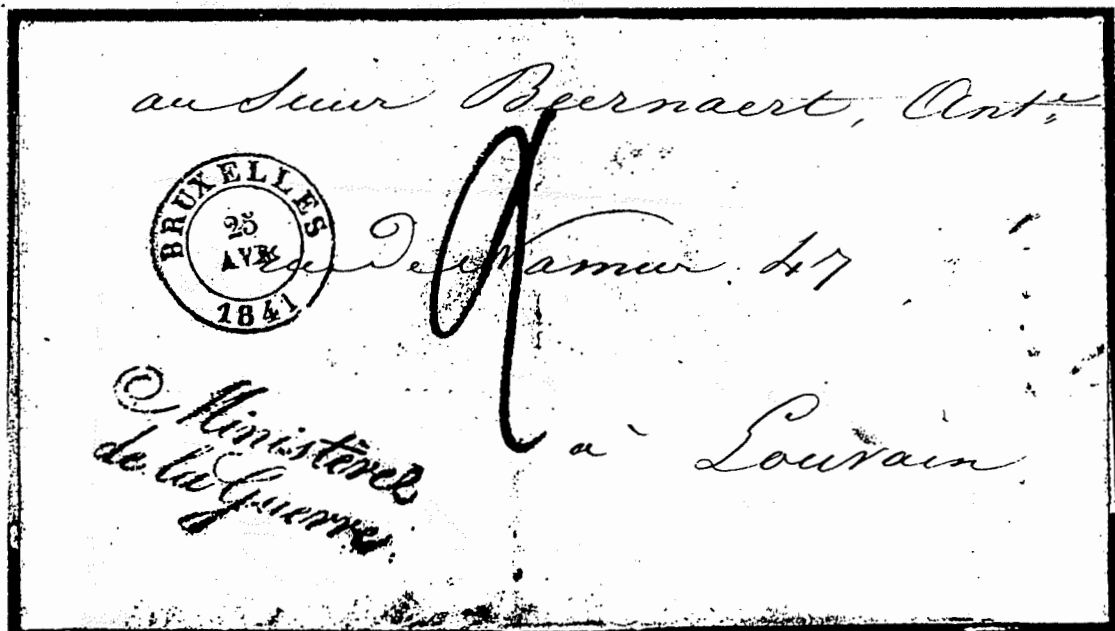 au Sieur Beernaert, Ant.e
BRUXELLES
25
AVR
1841
rue de Namur 47
2
à Louvain
Ministère
de la Guerre